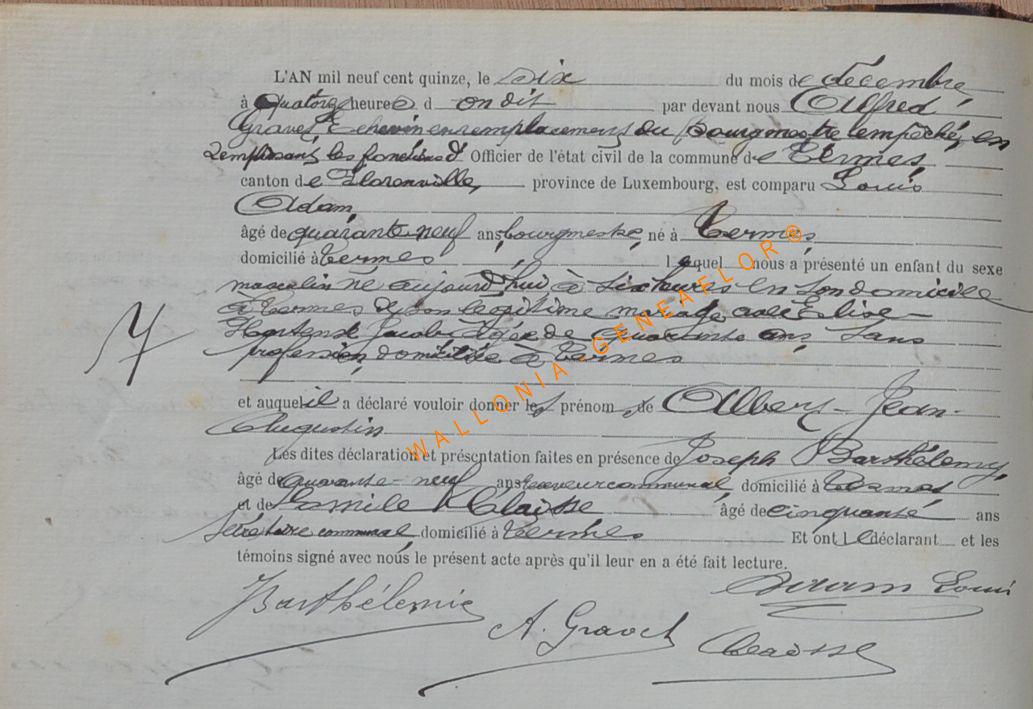 L'AN mil neuf cent quinze, le six du mois de décembre
à quatorze heures d on dit par devant nous Alfred
Echevin en remplacement du bourgmestre empêché, en
remplissant les fonctions d' Officier de l'état civil de la commune de Termes,
canton de Florenville, province de Luxembourg, est comparu Louis
Adam,
âgé de quarante neuf ans, bourgmestre, né à Termes
domicilié à Termes lequel nous a présenté un enfant du sexe
masculin né aujourd'hui à six heures en son domicile
à Termes de son légitime mariage avec Elise-
Hortense âgée de quarante ans, sans
profession, domiciliée à Termes
7
et auquel il a déclaré vouloir donner les prénoms de Albert-Jean-
Augustin
Les dites déclaration et présentation faites en présence de Joseph Barthélemy,
âgé de quarante-neuf ans receveur communal, domicilié à Termes
et de Camille Claisse âgé de cinquante ans
secrétaire communal domicilié à Termes Et ont le déclarant et les
témoins signé avec nous le présent acte après qu'il leur en a été fait lecture.
Adam Louis
Barthélemy
A.
Claisse
WALLONIA-GENEAFLOR®